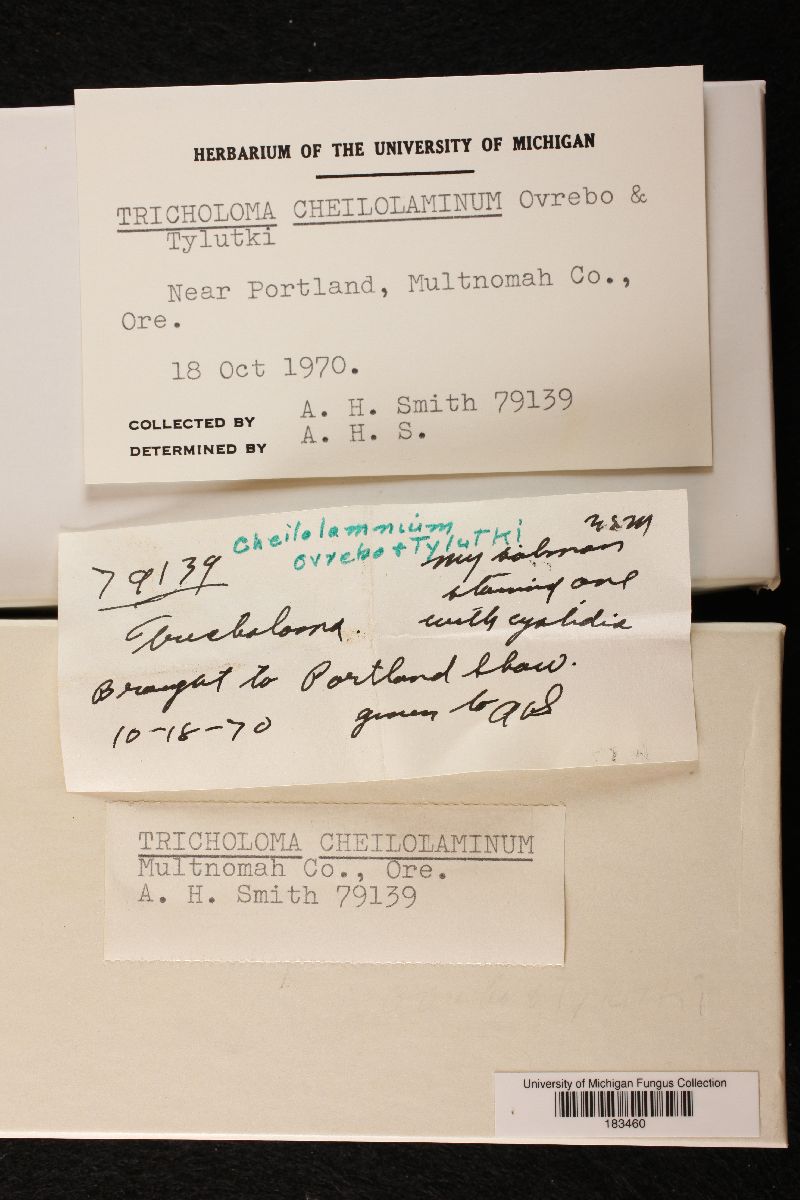 HERBARIUM OF THE UNIVERSITY OF MICHIGAN
TRICHOLOMA CHEILOLAMINUM Ovrebo &
Tylutki
Near Portland, Multnomah Co.,
Ore.
18 Oct 1970.
COLLECTED BY A. H. Smith 79139
DETERMINED BY A. H. S.
Cheilolamnium
Ovrebo + Tylutki
79139
my salmon
staining one
with cystidia
Tricholoma.
Brought to Portland Show.
10-18-70 given to AHS
TRICHOLOMA CHEILOLAMINUM
Multnomah Co., Ore.
A. H. Smith 79139
University of Michigan Fungus Collection
183460